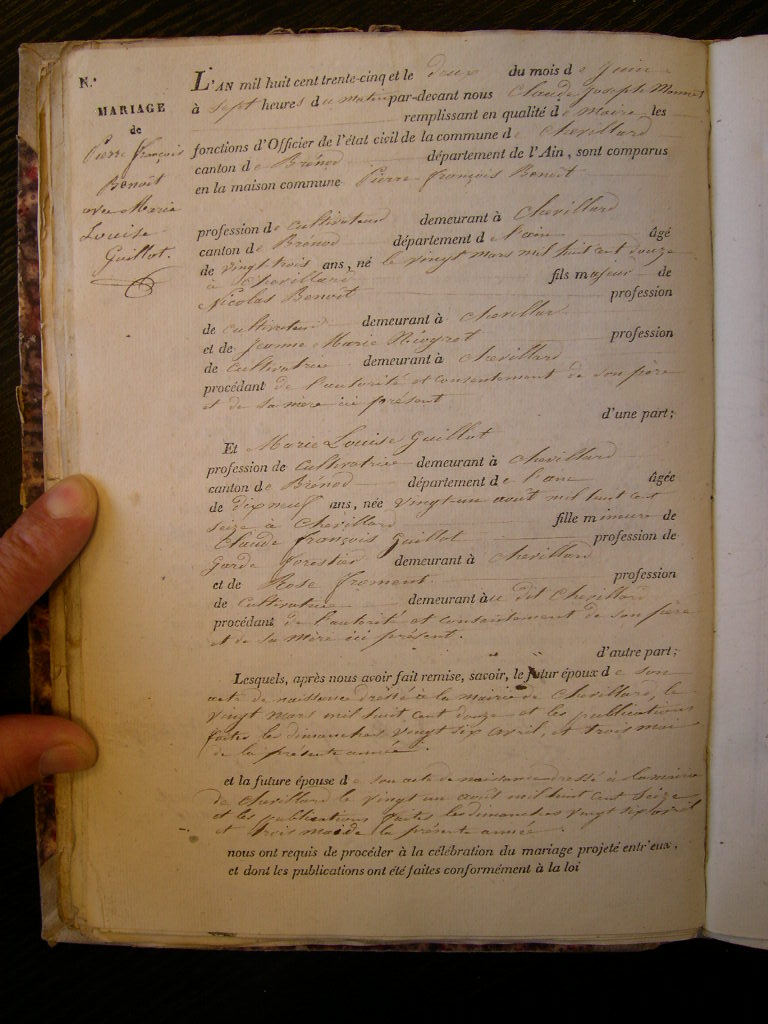 N.°
MARIAGE
de
Pierre françois
Benoit
avec Marie
Louise
Guillot.
L'AN mil huit cent trente-cinq et le deux du mois de juin
à sept heures du matin par-devant nous Claude Joseph
remplissant en qualité de maire les
fonctions d'Officier de l'état civil de la commune de Chevillard
canton de Brénod département de l'Ain, sont comparus
en la maison commune Pierre françois Benoit
profession de cultivateur demeurant à Chevillard
canton de Brénod département de l'ain âgé
de vingt trois ans, né le vingt mars mil huit cent douze
à Chevillard fils majeur de
Nicolas Benoit profession
de cultivateur demeurant à chevillard
et de Jeanne Marie profession
de cultivatrice demeurant à chevillard
procédant de l'autorité et consentement de son père
et de sa mère ici présent
d'une part;
Et Marie Louise Guillot
profession de cultivatrice demeurant à chevillard
canton de Brénod département de l'ain âgée
de dix neuf ans, née vingt-un août mil huit cent
seize à Chevillard fille mineure de
Claude françois Guillot profession de
garde forestier demeurant à chevillard
et de Rose froment profession
de cultivatrice demeurant au dit Chevillard
procédant de l'autorité et consentement de son père
et de sa Mère ici présent.
d'autre part;
Lesquels, après nous avoir fait remise, savoir, le futur époux de son
acte de naissance dréssé à la mairie de Chevillard, le
vingt mars mil huit cent douze et les publications
faites les dimanches vingt six avril, et trois mai
de la présente année.
et la future épouse de son acte de naissance dressé à la mairie
de chevillard le vingt un août mil huit cent seize
et les publications faites les dimanches vingt six avril
et trois mai de la présente année.
nous ont requis de procéder à la célébration du mariage projeté entr'eux,
et dont les publications ont été faites conformément à la loi